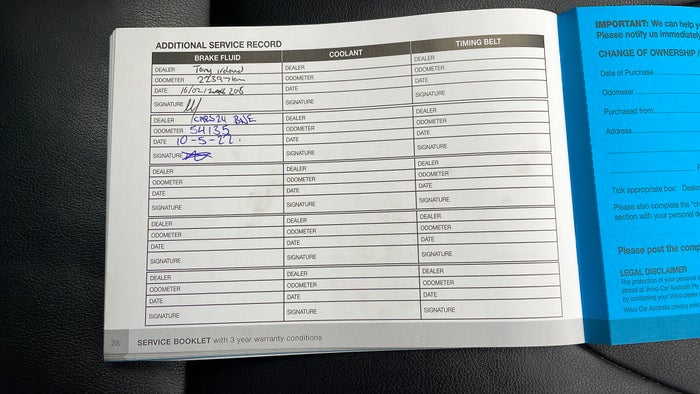 ADDITIONAL SERVICE RECORD
BRAKE FLUID COOLANT TIMING BELT
DEALER Tony Ireland DEALER DEALER
ODOMETER 22397km ODOMETER ODOMETER
DATE 16/02/ DATE DATE
SIGNATURE SIGNATURE SIGNATURE
DEALER CARS24 BNE DEALER DEALER
ODOMETER 54135 ODOMETER ODOMETER
DATE 10-5-22. DATE DATE
SIGNATURE SIGNATURE SIGNATURE
DEALER DEALER DEALER
ODOMETER ODOMETER ODOMETER
DATE DATE DATE
SIGNATURE SIGNATURE SIGNATURE
DEALER DEALER DEALER
ODOMETER ODOMETER ODOMETER
DATE DATE DATE
SIGNATURE SIGNATURE SIGNATURE
DEALER DEALER DEALER
ODOMETER ODOMETER ODOMETER
DATE DATE DATE
SIGNATURE SIGNATURE SIGNATURE
28 SERVICE BOOKLET with 3 year warranty conditions
IMPORTANT: We can help
Please notify us immediately
CHANGE OF OWNERSHIP /
Date of Purchase
Odometer
Purchased from
Address
Tick appropriate box: Deale
Please also complete the "ch
section with your personal d
Please post the comp
LEGAL DISCLAIMER
The protection of your personal
stored at Volvo Car Australia Pty
by contacting your Volvo dealer
Volvo Car Australia privacy polic